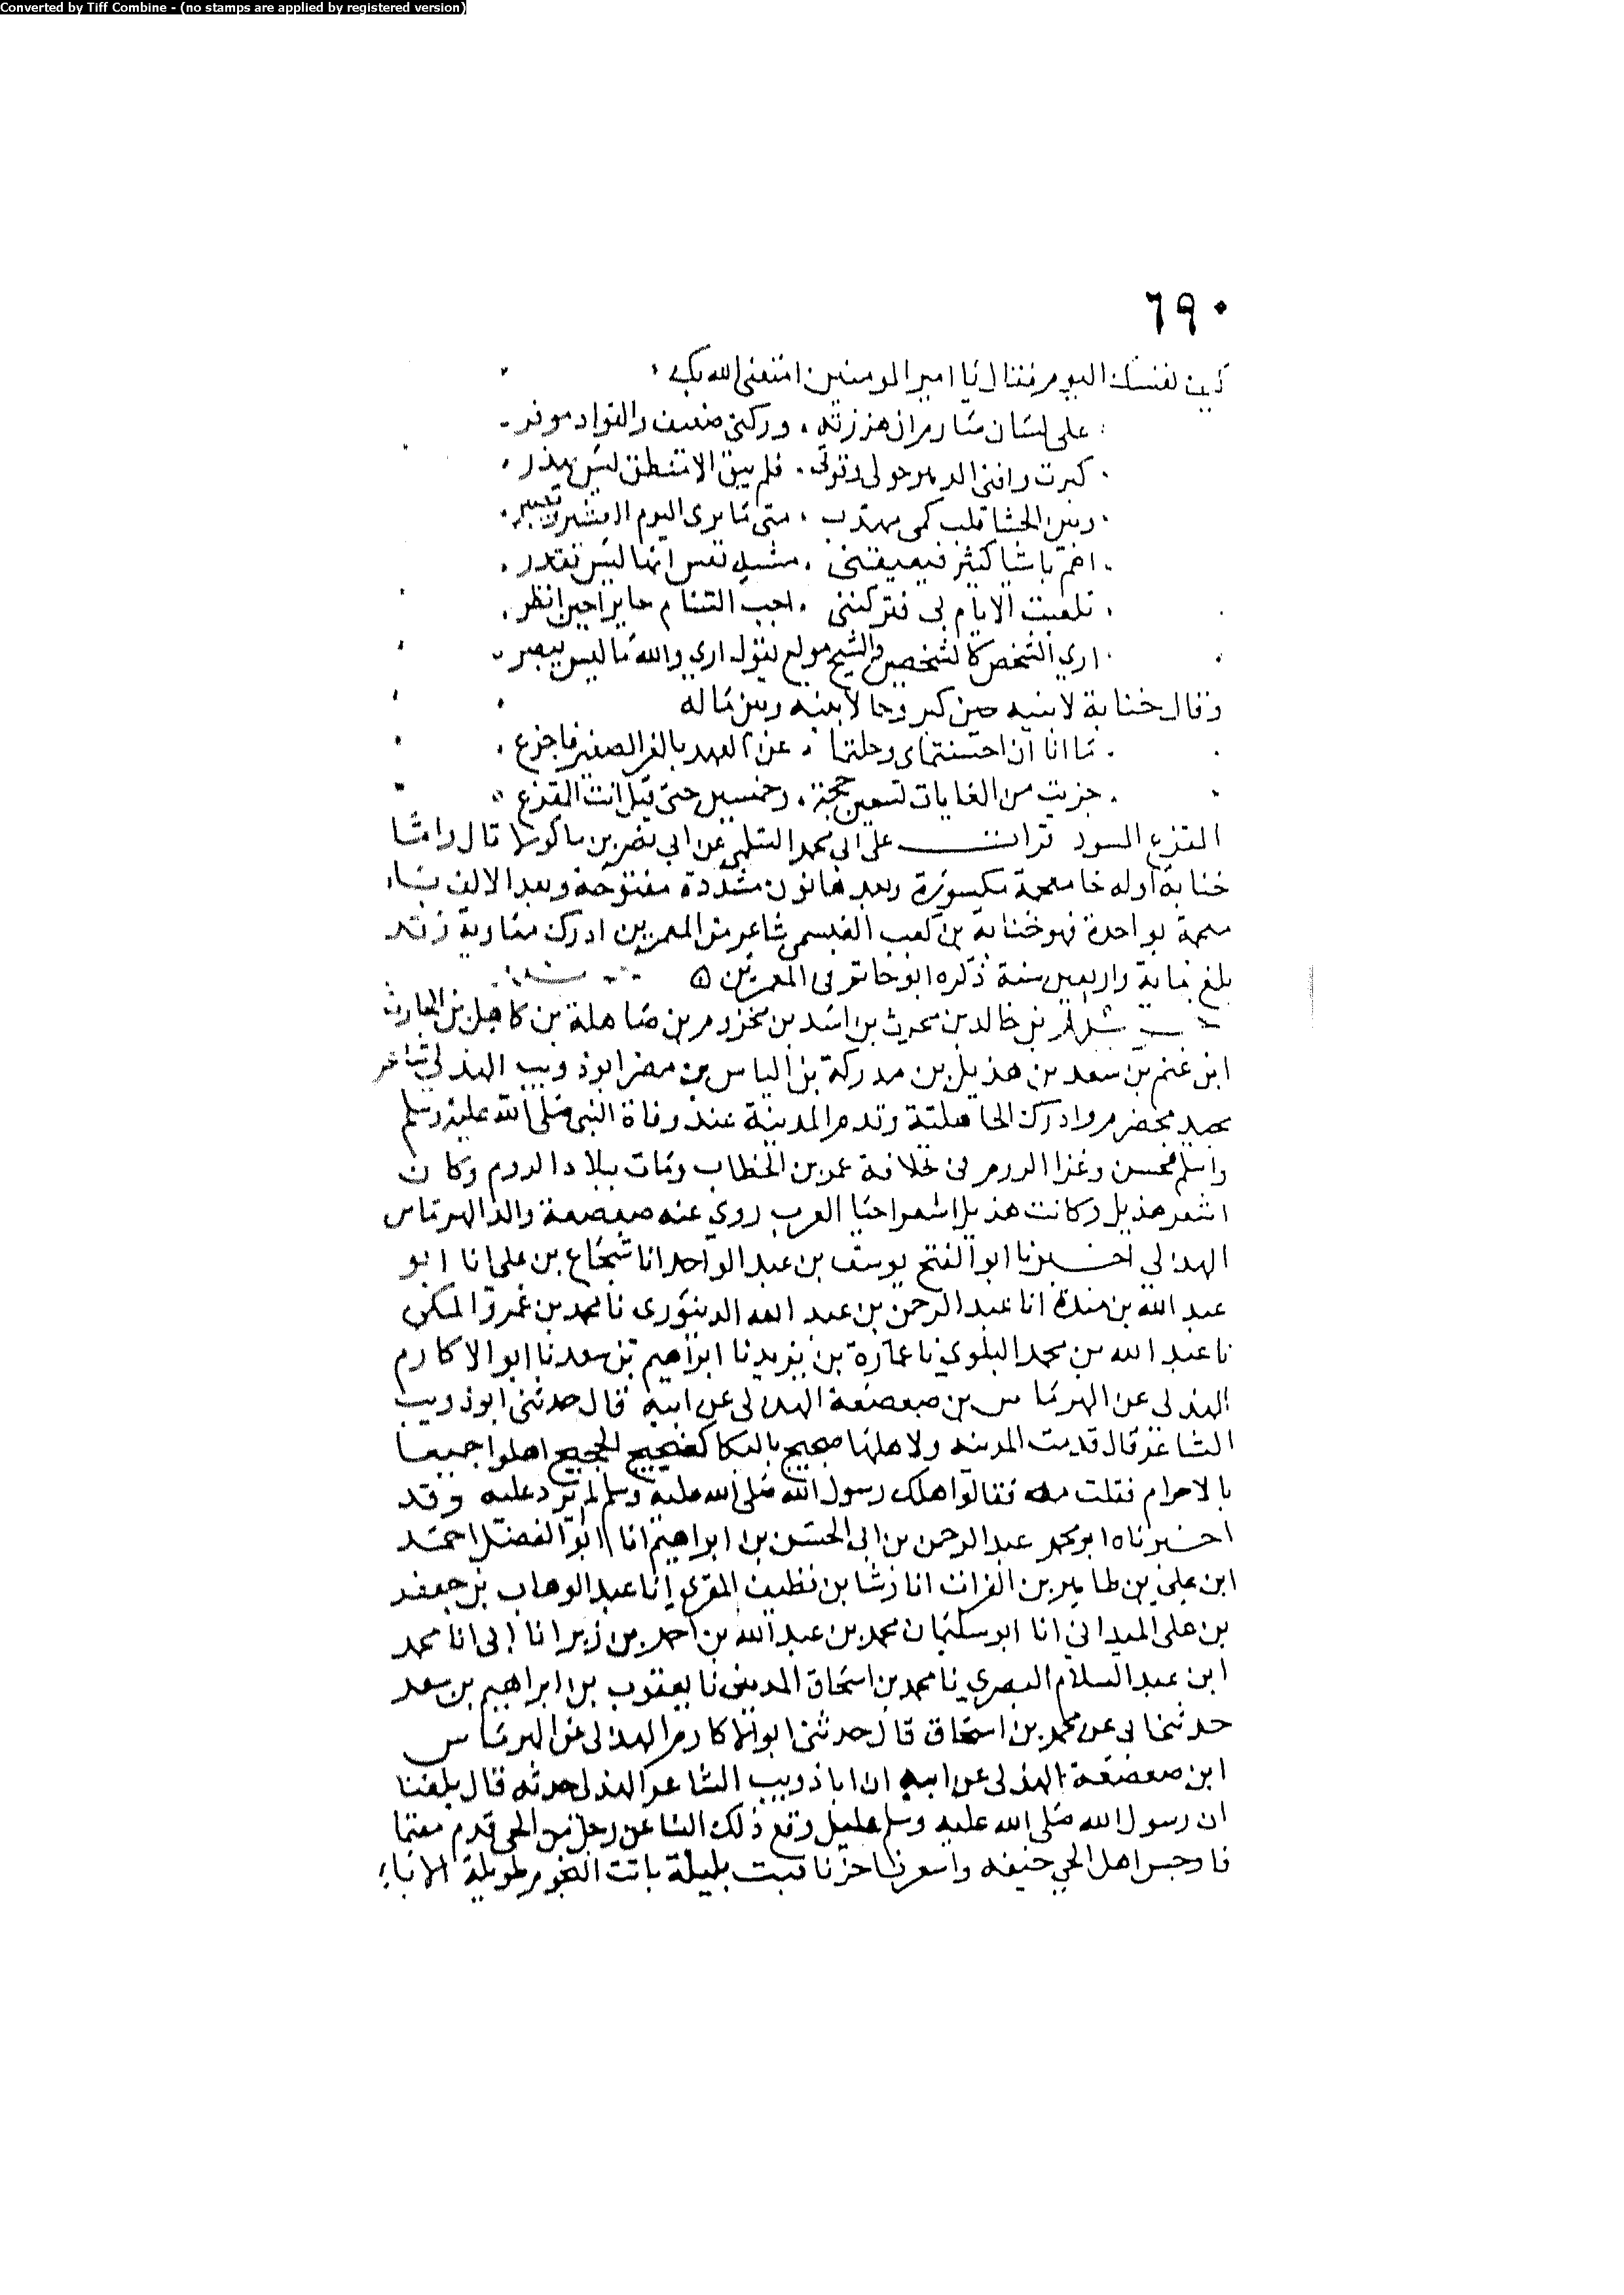 Converted by Tiff Combine - (no stamps are applied by registered version)
٦٩٠
نفسك اليوم فقال يا امير المومنين امتعني الله بك
على لسان صارم ان هززته وركني ضعيف والفواد موفر
كبرت وافنى الدهر حولي وقوتي فلم يبق الا منطق ليس يهذر
وبين الحشا قلب كمي مهذب متى ما يرى اليوم
اهم باشيا كثير فيعيقني مشيب نفس انها ليس تقدر
تلعبت الايام بي فتركنني اجب السنام حايرا حين انظر
ارى الشخص كالشخصين والشيخ مولع يقول ارى والله ما ليس يبصر
وقال خنابة لابنيه حين كبر وحالا بينه وبين ماله
ما انا ان احسنتماى وحلتما عن العهد بالغر الصغير فاجزع
جزيت من الغايات تسعين حجة وخمسين حتى قيل انت المقزع
المقزع المسود قرات على ابي محمد السلمي عن ابي نصر بن ماكولا قال واما
خنابة اوله خا معجمة مكسورة وبعدها نون مشددة مفتوحة وبعد الالف با
معجمة بواحدة فهو خنابة بن كعب العبشمي شاعر من المعمرين ادرك معاوية وقد
بلغ ماية واربعين سنة ذكره ابو حاتم في المعمرين
بن خالد بن محرث بن اسد بن مخزوم بن صاهلة بن كاهل بن الحارث
ابن غنم بن سعد بن هذيل بن مدركة بن الياس بن مضر ابو ذويب الهذلي شاعر
مجيد مخضرم وادرك الجاهلية وقدم المدينة عند وفاة النبي صلى الله عليه وسلم
واسلم فحسن وغزا الروم في خلافة عمر بن الخطاب ومات ببلاد الروم وكان
اشعر هذيل وكانت هذيل اشعر احيا العرب روى عنه صعصعة والد الهرماس
الهذلي اخبرنا ابو الفتح يوسف بن عبد الواحد انا شجاع بن علي انا ابو
عبد الله بن مندة انا عبد الرحمن بن عبد الله الدينوري نا محمد بن عمرو المكي
نا عبد الله بن محمد البلوي نا عمارة بن يزيد نا ابراهيم بن سعد نا ابو الاكارم
الهذلي عن الهرماس بن صعصعة الهذلي عن ابيه قال حدثني ابو ذويب
الشاعر قال قدمت المدينة ولاهلها ضجيج بالبكا كضجيج الحجيج اهلوا جميعا
بالاحرام فقلت مه فقالوا هلك رسول الله صلى الله عليه وسلم لم يزد عليه وقد
اخبرناه ابو محمد عبد الرحمن بن ابي الحسن بن ابراهيم انا ابو الفضل احمد
ابن علي بن طاهر بن الفرات انا رشا بن نظيف المقري انا عبد الوهاب بن جعفر
بن علي الميداني انا ابو سليمان محمد بن عبد الله بن احمد بن زبر انا ابي انا محمد
ابن عبد السلام البصري نا محمد بن اسحاق المديني نا يعقوب بن ابراهيم بن سعد
حدثني ابي عن محمد بن اسحاق قال حدثني ابو الاكارم الهذلي عن الهرماس
ابن صعصعة الهذلي عن ابيه ان ابا ذويب الشاعر الهذلي حدثه قال بلغنا
ان رسول الله صلى الله عليه وسلم عليل وقع ذلك الينا عن رجل من الحي قدم معتما
فاوجس اهل الحي خيفة واسعرنا حزنا فبت بليلة باتت النجوم طويلة الاناء